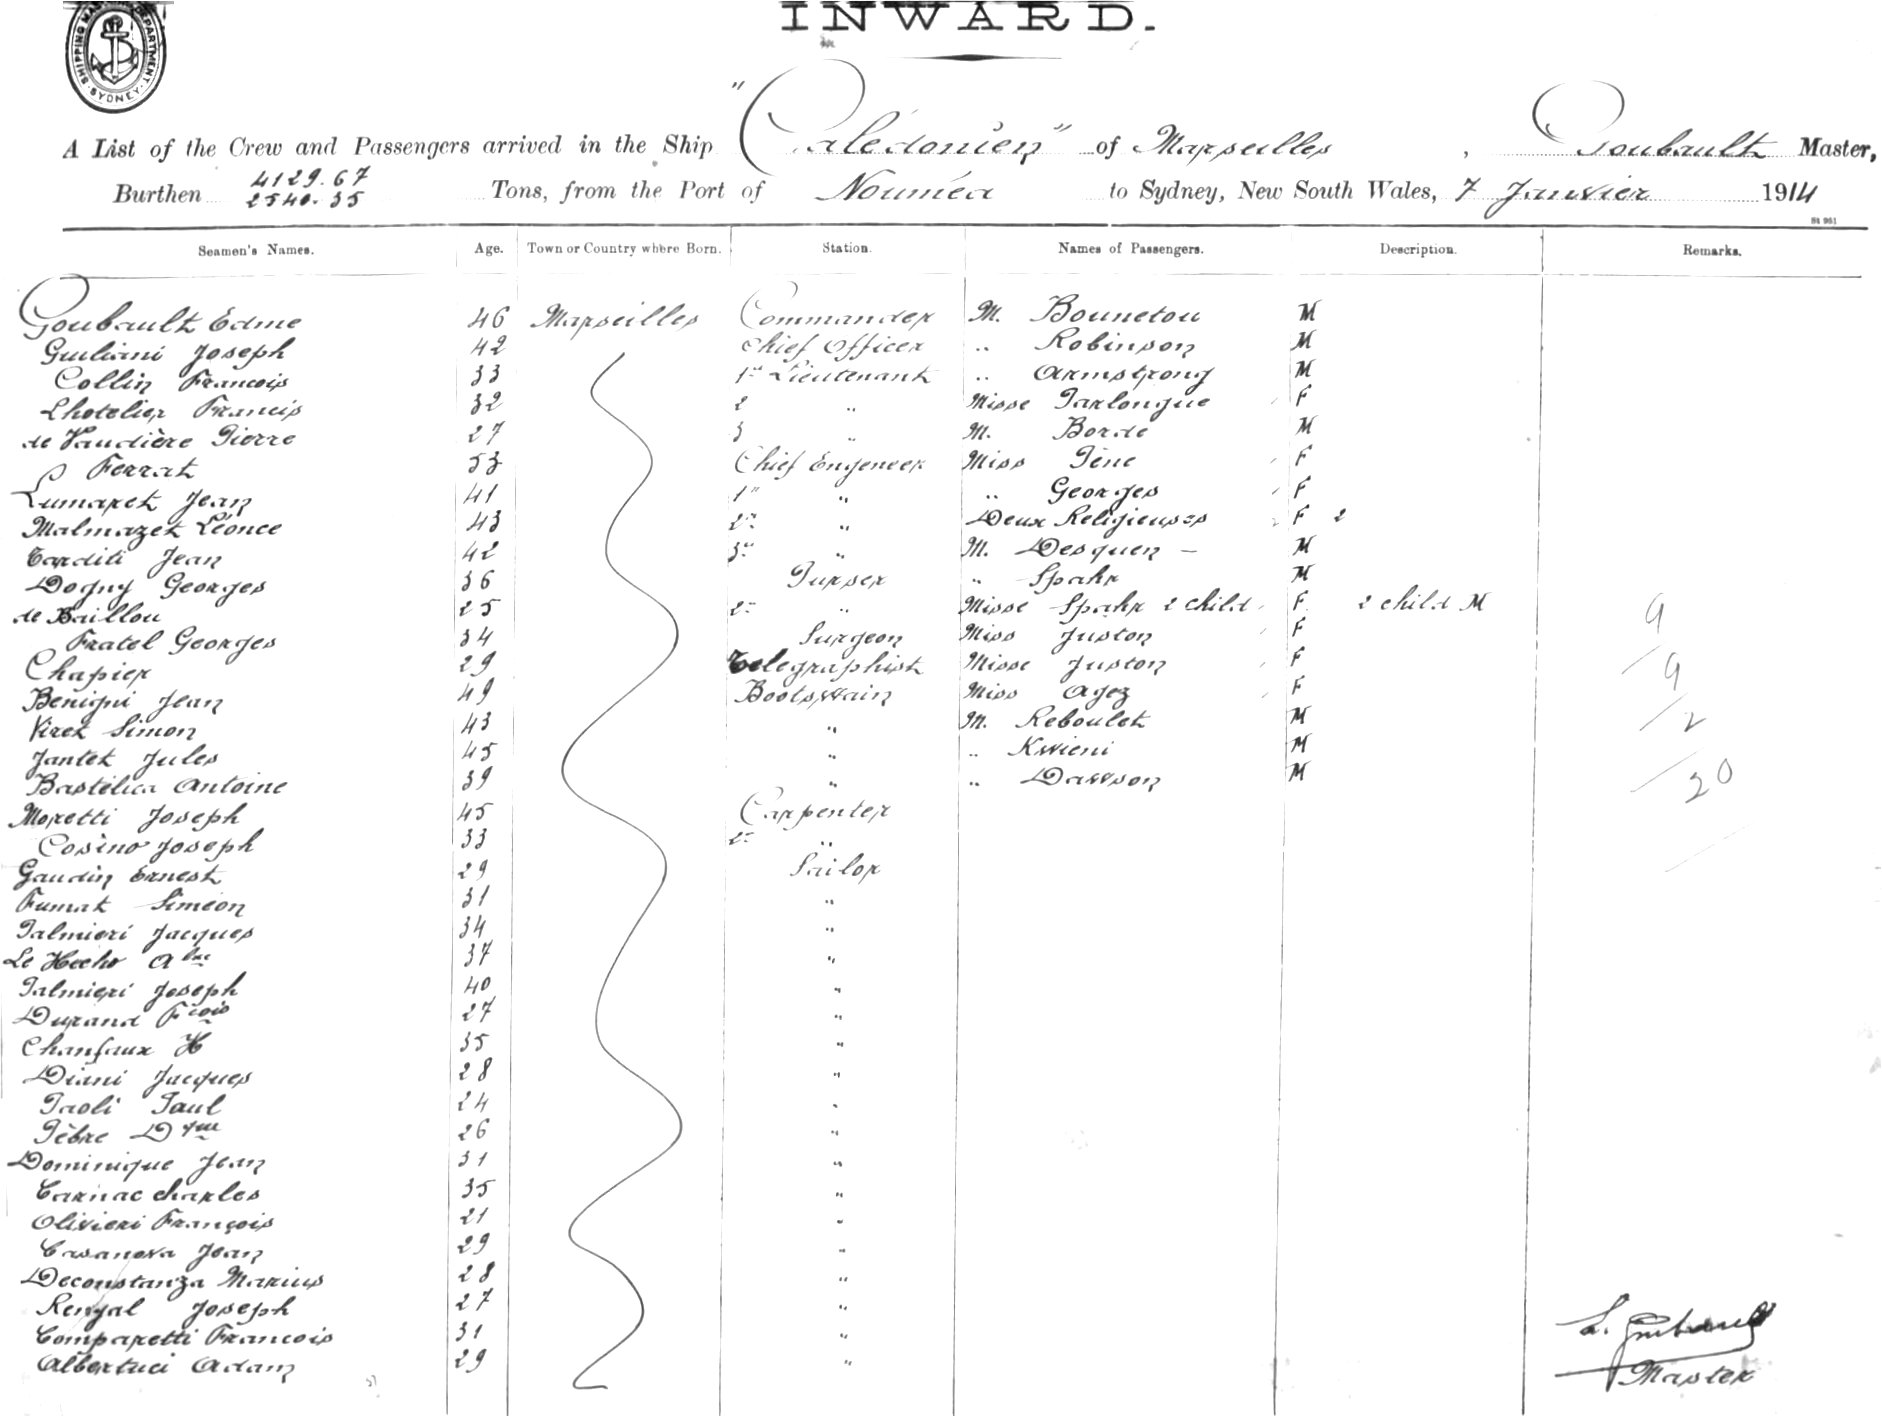 SHIPPING MASTER'S DEPARTMENT SYDNEY
INWARD.
A List of the Crew and Passengers arrived in the Ship "Calédonien" of Marseilles, Goubault Master,
Burthen 4129.67 2540.35 Tons, from the Port of Nouméa to Sydney, New South Wales, 7 Janvier 1914
St 981
Seamen's Names. Age. Town or Country where Born. Station. Names of Passengers. Description. Remarks.
Goubault Edme 46 Marseilles Commander M. Bounetou M
Giuliani Joseph 42 Chief Officer " Robinson M
Collin Francois 33 1er Lieutenant " Armstrong M
Lhotelier Francis 32 2 " Misse Parlongue F
de Vaudière Pierre 27 3 " M. Borde M
Ferrat 53 Chief Engeneer Miss Pène F
Lumaret Jean 41 1er " " Georges F
Malmazet Léonce 43 2e " Deux Religieuses F 2
Carditi Jean 42 3e " M. Desquen – M
Dogny Georges 36 Purser " Spahr M
de Baillou 25 2e " Misse Spahr 2 child. F. 2 child M 9
Fratel Georges 34 Surgeon Miss Juston F
Chapier 29 Telegraphist Misse Juston F 9
Benigni Jean 49 Bootswain Miss Agez F
Viret Simon 43 " M. Reboulet M 2
Jantet Jules 45 " " Kwieni M
Bastelica Antoine 39 " " Dawson M 20
Moretti Joseph 45 Carpenter
Cosino Joseph 33 2e "
Gaudin Ernest 29 Sailor
Fumat Simeon 31 "
Palmieri Jacques 34 "
Le Hecho 37 "
Palmieri Joseph 40 "
Durand Fçois 27 "
Chanfaux H 35 "
Diani Jacques 28 "
Paoli Paul 24 "
Pèbre Dque 26 "
Dominique Jean 31 "
Carnac Charles 35 "
Olivieri François 21 "
Casanova Jean 29 "
Deconstanza Marius 28 "
Rengal Joseph 27 "
Comparetti Francois 31 "
Albertuci Adam 29 "
Master